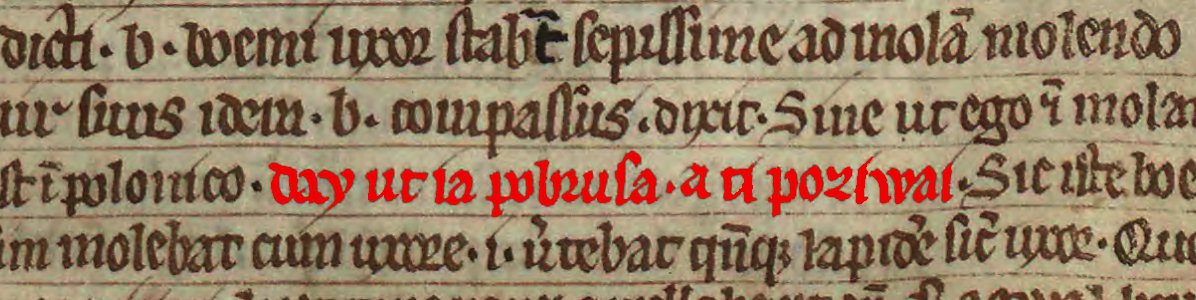 dicti · b · boemi uxor stabat sepissime ad molā molendo
uir suus idem · b · compassus · dixit · Sine ut ego ī molar
st ī polonico · day ut ia pobrusa · a ti poziwai · Sic iste boe
im molebat cum uxore · i · u̅tebat qn̄qꝫ lapidē sic̄ uxor · Que